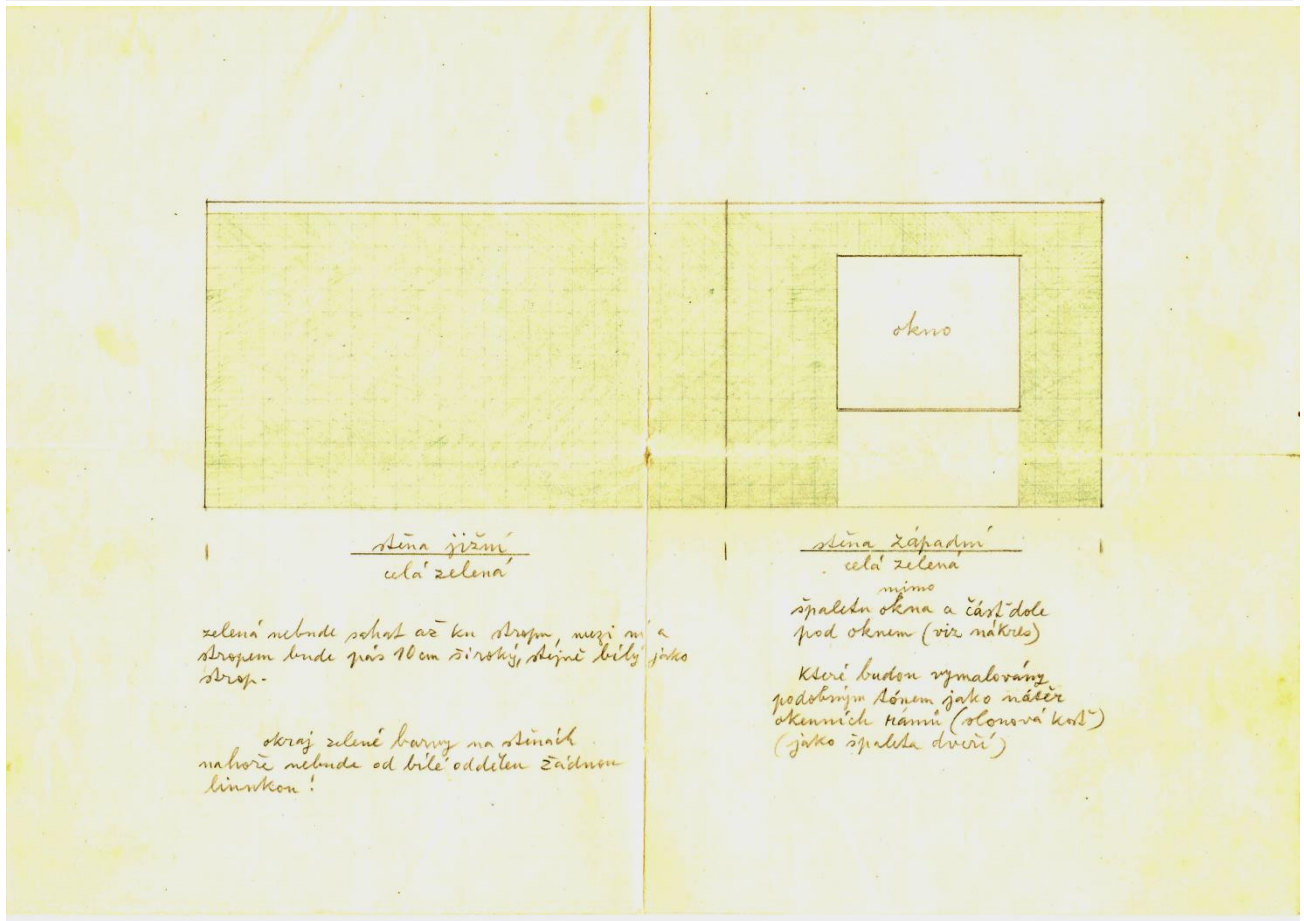 okno
stěna jižní
celá zelená
zelená nebude sahat až ku stropu, mezi ní a
stropem bude pás 10 cm široký, stejně bílý jako
strop.
okraj zelené barvy na stěnách
nahoře nebude od bílé oddělen žádnou
linkou!
stěna západní
celá zelená
mimo
špaletu okna a část dole
pod oknem (viz nákres)
které budou vymalovány
podobným tónem jako nátěr
okenních rámů (slonová kost)
(jako špaleta dveří)